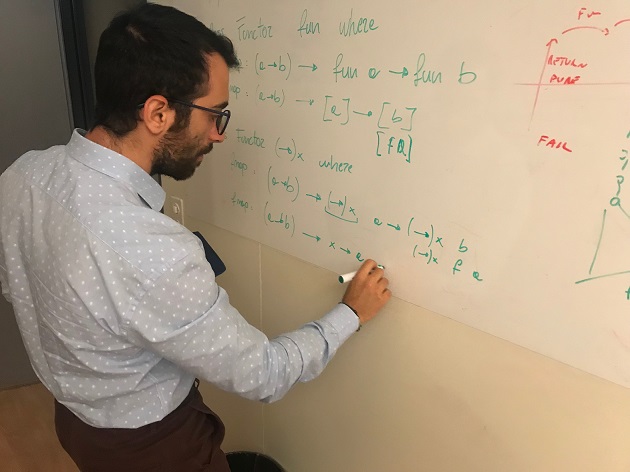 Functor fun where
: (a→b) → fun a → fun b
: (a→b) → [a] → [b]
[f a]
Functor (→) x where
fmap : (a→b) → (→) x a → (→) x b
(→) x f a
fmap : (a→b) → x → a
Fu
RETURN
PURE
FAIL